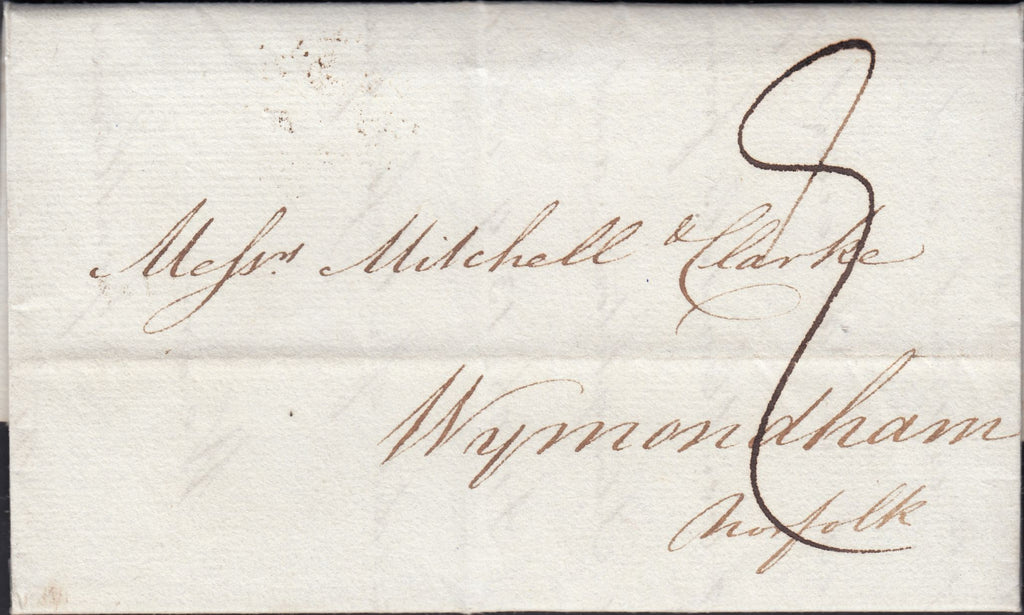 Messrs Mitchell & Clarke
Wymondham
Norfolk
8